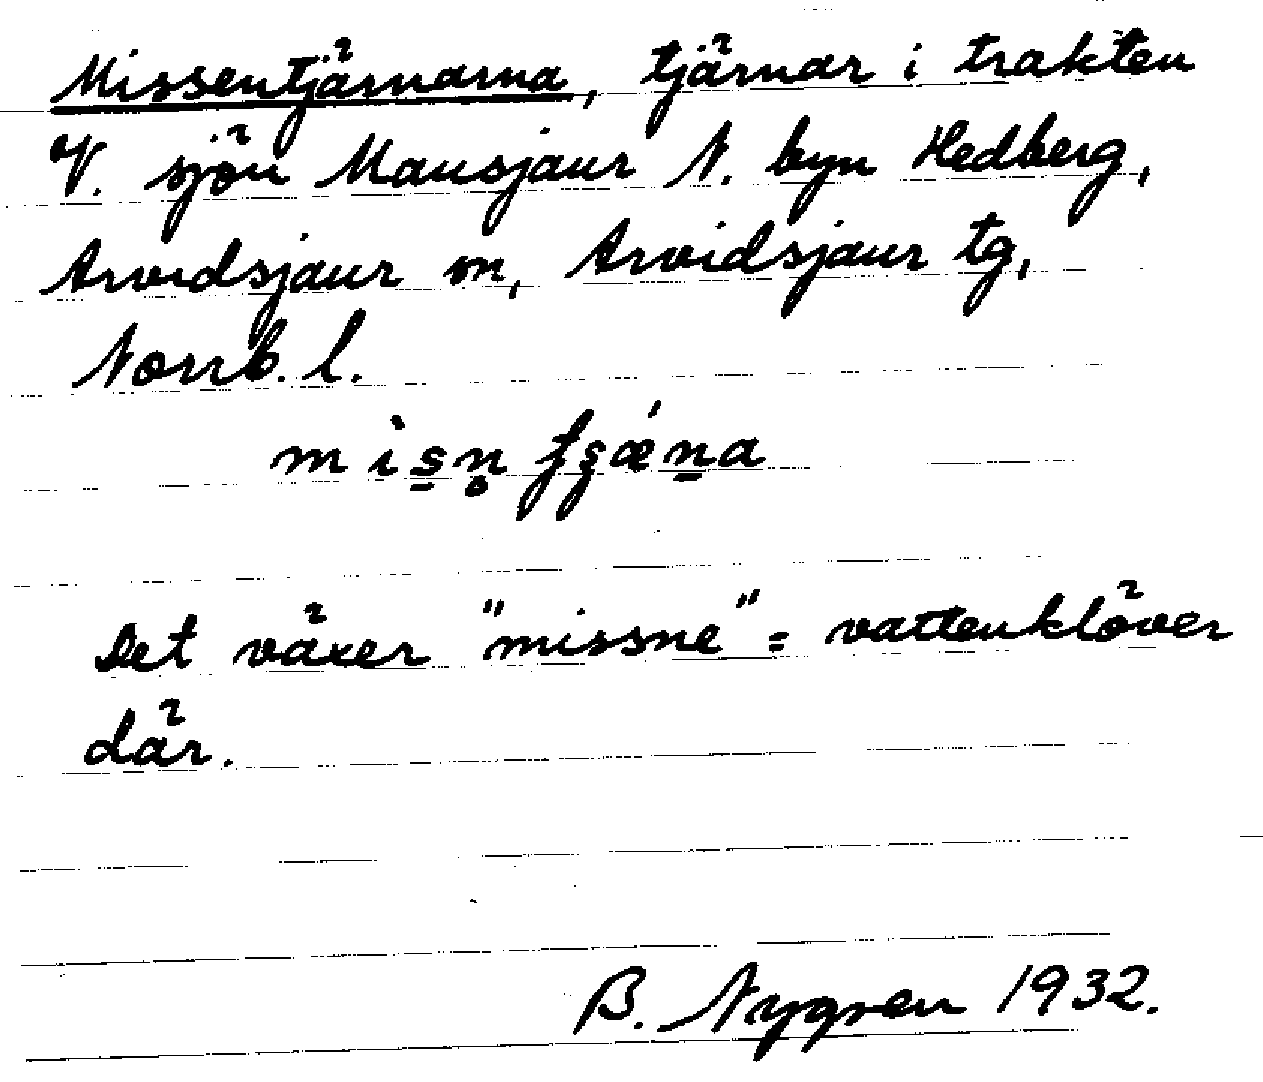 Missentjärnarna, tjärnar i trakten
V. sjön Mausjaur N. byn Hedberg,
Arvidsjaur sn, Arvidsjaur tg,
Norrb. l.
mìs̱n̥ ʃʂǽṉa
Det växer "missne" = vattenklöver
där.
B. Nygren 1932.